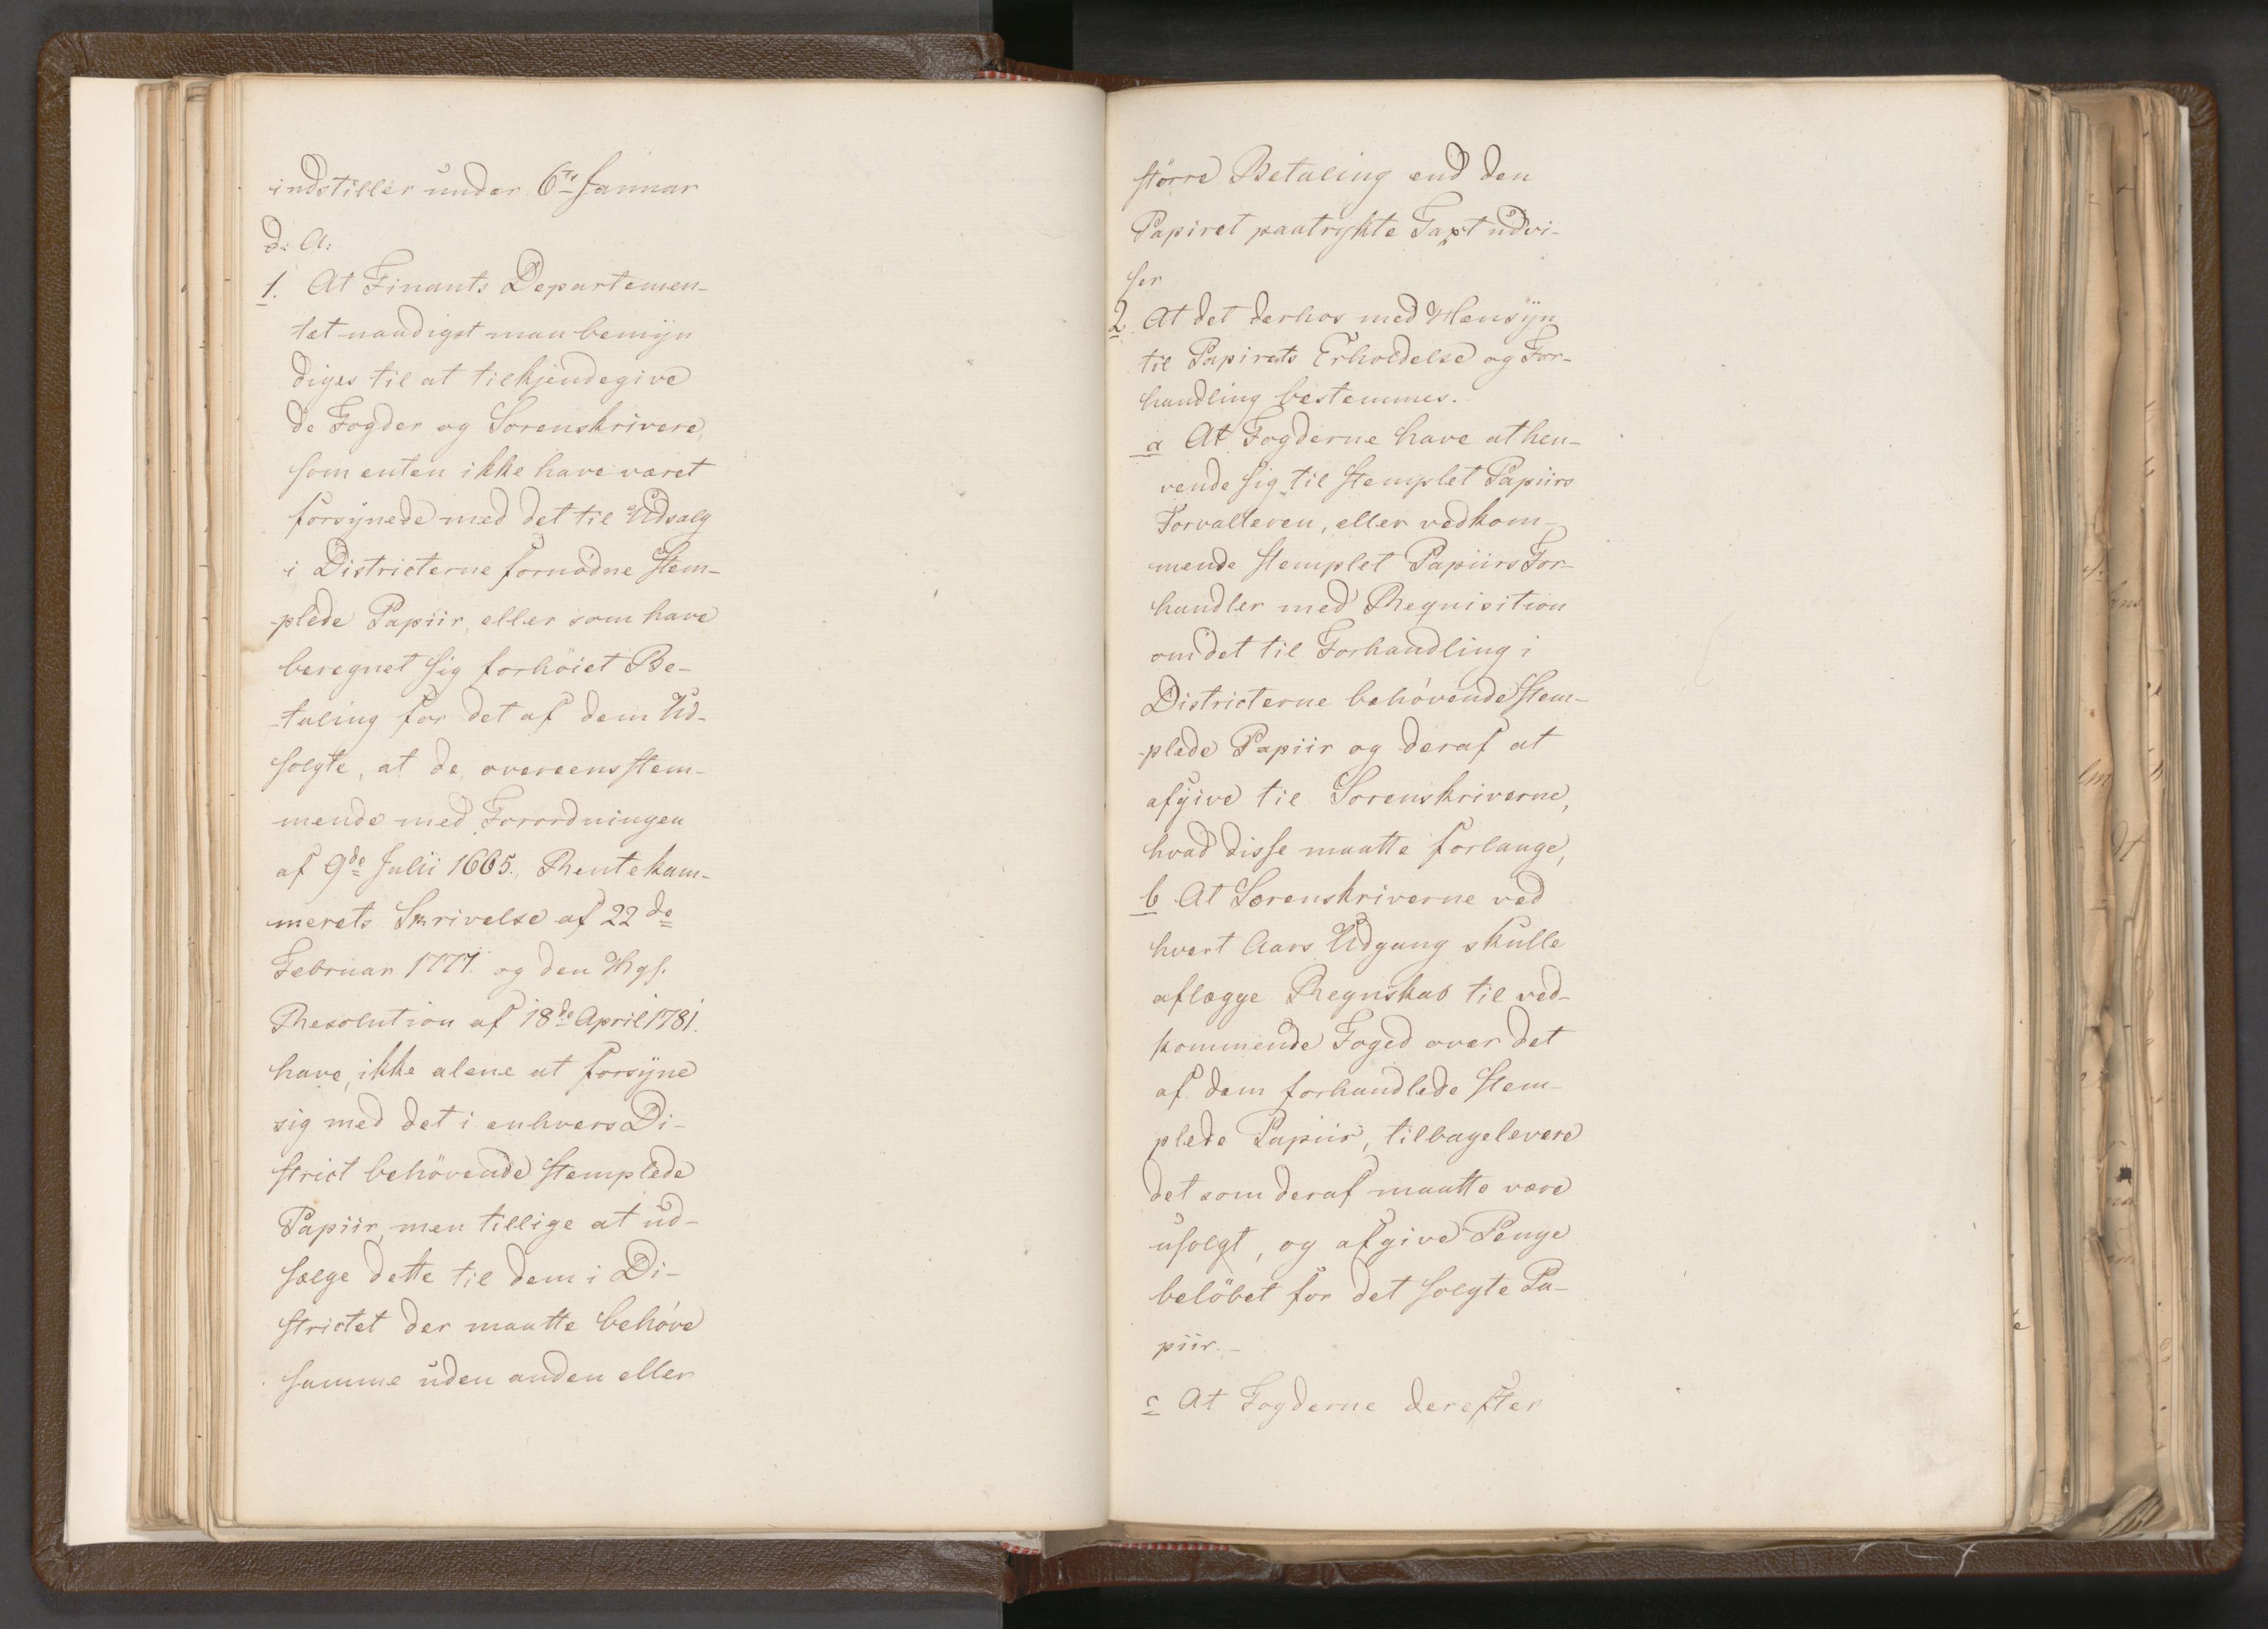 indstiller under 6te Januar
d: A:
1. At Finants Departemen-
tet naadigst maa bemijn
diges til at tilkjendegive
de Fogder og Sorenskrivere,
som enten ikke have været
forsijnede med det til Udsalg
i Districterne fornødne stem-
-plede Papiir, eller som have
beregnet sig forhöiet Be-
-taling for det af dem Ud-
solgte, at de, overeensstem-
mende med Forordningen
af 9de Julii 1665., Rentekam-
merets Skrivelse af 22de
Februar 1777. og den Kgl.
Resolution af 18de April 1781.
have, ikke alene at forsijne
sig med det i enhvers Di-
strict behövende stemplede
Papiir, men tillige at ud-
sælge dette til dem i Di-
strictet der maatte behöve
samme uden anden eller
större Betaling end den
Papiret paatrykte Taxt udvi-
ser
2. At det derhos med Hensijn
til Papirets Erholdelse og For-
handling bestemmes.
a At Fogderne have at hen-
vende sig til stemplet Papiirs
Forvalteren, eller vedkom-
mende stemplet Papiirs For-
handler med Requisition
om det til Forhandling i
Districterne behövende stem-
-plede Papiir og deraf at
afgive til Sorenskriverne,
hvad disse maatte forlange,
b At Sorenskriverne ved
hvert Aars Udgang skulle
aflægge Regnskab til ved-
kommende Foged over det
af dem forhandlede stem-
plede Papiir, tilbagelevere
det som deraf maatte være
usolgt, og afgive Penge
belöbet for det solgte Pa-
piir.-
c At Fogderne derefter